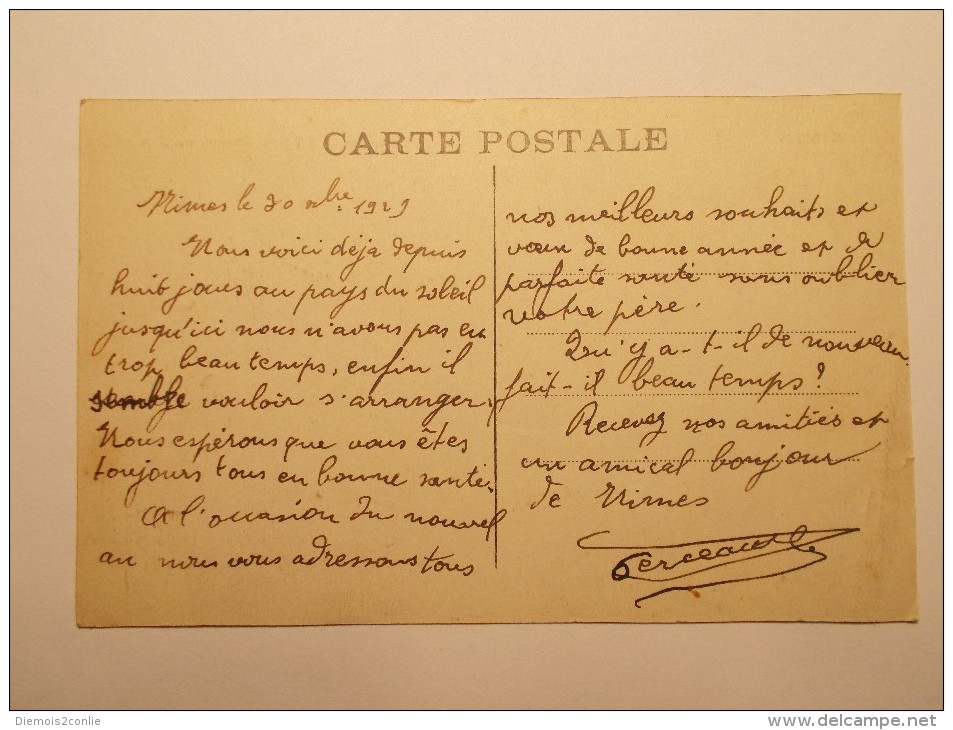 CARTE POSTALE
Nimes le 30 xbre 1929
Nous voici déja depuis
huit jours au pays du soleil
jusqu'ici nous n'avons pas eu
trop beau temps, enfin il
semble vouloir s'arranger,
Nous espérons que vous êtes
toujours tous en bonne santé.
A l'occasion du nouvel
an nous vous adressons tous
nos meilleurs souhaits et
vœux de bonne année et de
parfaite santé sans oublier
votre père.
Qu'y a-t-il de nouveau
fait-il beau temps?
Recevez nos amitiés et
un amical bonjour
de Nimes
Diemois2conlie
delcampe.net